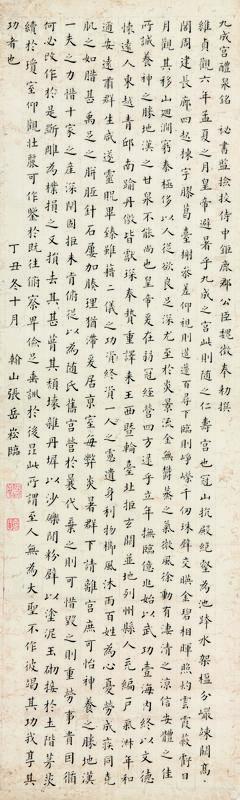 九成宮醴泉銘 秘書監撿挍侍中鉅鹿郡公臣魏徵奉勅撰
維貞觀六年孟夏之月皇帝避暑乎九成之宮此則隨之仁壽宮也冠山抗殿絕壑為池跨水架楹分巖竦闕高
閣周建長廊四起棟宇膠葛臺榭參差仰視則迢遰百尋下臨則崢嶸千仞珠璧交暎金碧相暉照灼雲霞蔽虧日
月觀其移山迴澗窮泰極侈以人從欲良足深尤至於炎景流金無鬱蒸之氣微風徐動有淒清之涼信安體之佳
所誠養神之勝地漢之甘泉不能尚也皇帝爰在弱冠經營四方逮乎立年撫臨億兆始以武功壹海內終以文德
懷遠人東越青邱南踰丹徼皆獻琛奉贄重譯來王西暨輪臺北拒玄闕並地列州縣人充編戶氣淑年和
邇安遠肅群生咸遂靈貺畢臻雖藉二儀之功終資一人之慮遺身利物櫛風沐雨百姓為心憂勞成疾同堯
肌之如腊甚禹足之胼胝針石屢加腠理猶滯爰居京室每弊炎暑群下請離宮庶可怡神養之勝地漢
一夫之力惜十家之産深閉固拒未肯俯從以為隨氏舊宮營於曩代棄之則可惜毀之則重勞事貴因循
何必改作於是斲雕為樸損之又損去其甚葺其頹壞雜丹墀以沙礫間粉壁以塗泥玉砌接於土階茅茨
續於瓊室仰觀壯麗可作鑒於既往俯察卑儉足垂訓於後昆此所謂至人無為大聖不作彼竭其功我享其
功者也
丁丑冬十月 翰山張岳崧臨